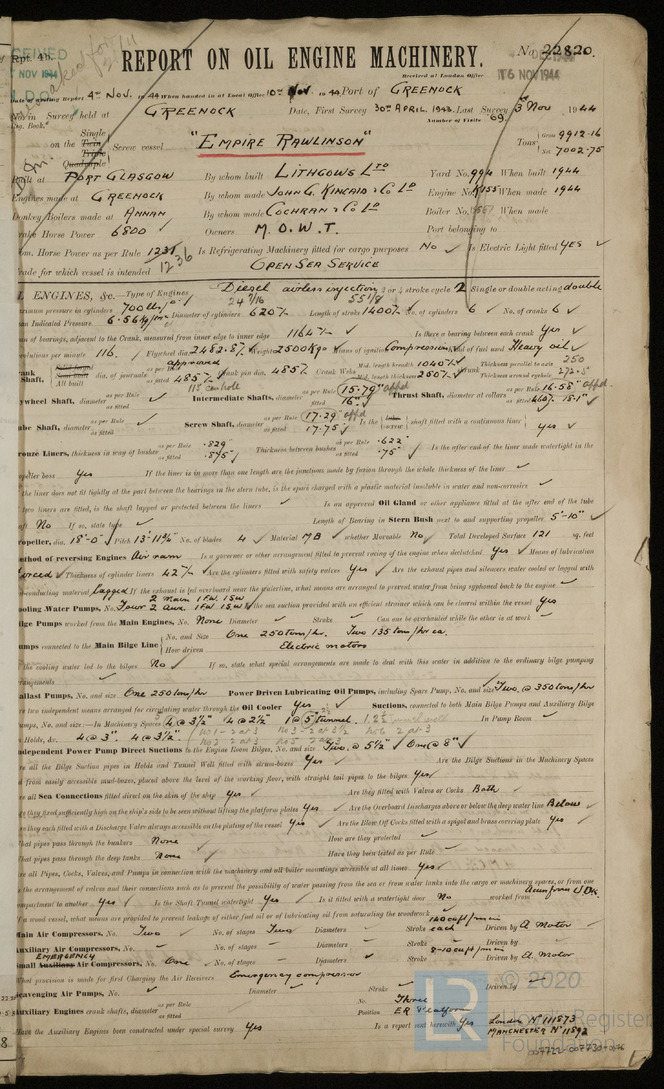 Rpt. 4b.
REPORT ON OIL ENGINE MACHINERY.
No 22820.
NOV 1944
Received at London Office
16 NOV 1944
Date of writing Report 4th Nov. 1944 When handed in at Local Office 10th Nov. 1944 Port of GREENOCK
Survey held at GREENOCK Date, First Survey 30th APRIL. 1943. Last Survey 3rd Nov 1944
Number of Visits 69
Single
on the Twin Screw vessel "EMPIRE RAWLINSON" Tons Gross 9912.16
Triple
Quadruple Net 7002.75
Built at PORT GLASGOW By whom built LITHGOWS LTD Yard No. 994 When built 1944
Engines made at GREENOCK By whom made JOHN G. KINCAID & Co LTD Engine No. K155 When made 1944
Donkey Boilers made at ANNAN By whom made COCHRAN & Co LTD Boiler No. When made
Brake Horse Power 6800 Owners M.O.W.T. Port belonging to
Nom. Horse Power as per Rule 1231 Is Refrigerating Machinery fitted for cargo purposes No Is Electric Light fitted YES
1236
Trade for which vessel is intended OPEN SEA SERVICE
ENGINES, &c. — Type of Engines Diesel airless injection 2 or 4 stroke cycle 2 Single or double acting double
700 lbs/ 24 7/16 55 1/8
Maximum pressure in cylinders Diameter of cylinders 620 % Length of stroke 1400 % No. of cylinders 6 No. of cranks 6
Mean Indicated Pressure 6.56 kg/
of bearings, adjacent to the Crank, measured from inner edge to inner edge 1164 % Is there a bearing between each crank Yes
Revolutions per minute 116. Flywheel dia. 2482.8 % Weight 2500 Kgs Means of ignition Compression Kind of fuel used Heavy oil
Crank Shaft, dia. of journals as per Rule approved as fitted 485 % Crank pin dia. 485 % Crank Webs Mid. length breadth 1040 % Mid. length thickness 250 % Thickness parallel to axis 250 Thickness around eyehole 272.5
Flywheel Shaft, diameter Intermediate Shafts, diameter as per Rule 15.79" appd as fitted 16" Thrust Shaft, diameter at collars as per Rule 16.58" appd. as fitted 460 % 18.1"
Tube Shaft, diameter Screw Shaft, diameter as per Rule 17.29" appd as fitted 17.75" Is the shaft fitted with a continuous liner Yes
Bronze Liners, thickness in way of bushes as per Rule .829" as fitted .875" Thickness between bushes as per Rule .622" as fitted .75" Is the after end of the liner made watertight in the
propeller boss Yes If the liner is in more than one length are the junctions made by fusion through the whole thickness of the liner
the liner does not fit tightly at the part between the bearings in the stern tube, is the space charged with a plastic material insoluble in water and non-corrosive
two liners are fitted, is the shaft lapped or protected between the liners Is an approved Oil Gland or other appliance fitted at the after end of the tube
shaft No If so, state type Length of Bearing in Stern Bush next to and supporting propeller 5'-10"
Propeller, dia. 18'-0" Pitch 13'-11 No. of blades 4 Material MB whether Moveable No Total Developed Surface 121 sq. feet
Method of reversing Engines Air ram Is a governor or other arrangement fitted to prevent racing of the engine when declutched Yes Means of lubrication
Forced Thickness of cylinder liners 42 % Are the cylinders fitted with safety valves Yes Are the exhaust pipes and silencers water cooled or lagged with
non-conducting material lagged If the exhaust is led overboard near the waterline, what means are arranged to prevent water from being syphoned back to the engine
2 Main 1 F.W. 1 S.W
Cooling Water Pumps, No. Four 2 Aux. 1 F.W. 1 S.W Is the sea suction provided with an efficient strainer which can be cleared within the vessel Yes
Bilge Pumps worked from the Main Engines, No. None Diameter Stroke Can one be overhauled while the other is at work
Pumps connected to the Main Bilge Line No. and Size One 250 tons/hr. Two 135 tons/hr ea.
How driven Electric motors
the cooling water led to the bilges No If so, state what special arrangements are made to deal with this water in addition to the ordinary bilge pumping
arrangements
Ballast Pumps, No. and size One 250 tons/hr Power Driven Lubricating Oil Pumps, including Spare Pump, No. and size Two @ 350 tons/hr
two independent means arranged for circulating water through the Oil Cooler Yes Suctions, connected to both Main Bilge Pumps and Auxiliary Bilge
Pumps, No. and size:—In Machinery Spaces 4 @ 3½" 4 @ 2½" 1 @ 5" tunnel. In Pump Room
Holds, &c. 4 @ 3" 4 @ 3½"
Independent Power Pump Direct Suctions to the Engine Room Bilges, No. and size Two @ 5½" One @ 8"
all the Bilge Suction pipes in Holds and Tunnel Well fitted with strum-boxes Yes Are the Bilge Suctions in the Machinery Spaces
from easily accessible mud-boxes, placed above the level of the working floor, with straight tail pipes to the bilges Yes
all Sea Connections fitted direct on the skin of the ship Yes Are they fitted with Valves or Cocks Both
they fixed sufficiently high on the ship's side to be seen without lifting the platform plates Yes Are the Overboard Discharges above or below the deep water line Below
they each fitted with a Discharge Valve always accessible on the plating of the vessel Yes Are the Blow Off Cocks fitted with a spigot and brass covering plate Yes
What pipes pass through the bunkers None How are they protected
What pipes pass through the deep tanks None Have they been tested as per Rule
all Pipes, Cocks, Valves, and Pumps in connection with the machinery and all boiler mountings accessible at all times Yes
the arrangement of valves and their connections such as to prevent the possibility of water passing from the sea or from water tanks into the cargo or machinery spaces, or from one
compartment to another Yes Is the Shaft Tunnel watertight Yes Is it fitted with a watertight door No worked from
If a wood vessel, what means are provided to prevent leakage of either fuel oil or of lubricating oil from saturating the woodwork
Main Air Compressors, No. Two No. of stages Two Diameters Stroke each Driven by A Motor
Auxiliary Air Compressors, No. No. of stages Diameters Stroke Driven by
EMERGENCY
Small Auxiliary Air Compressors, No. One No. of stages Diameters Stroke Driven by A. Motor
What provision is made for first Charging the Air Receivers Emergency compressor
Scavenging Air Pumps, No. Diameter Stroke Driven by
Auxiliary Engines crank shafts, diameter as per Rule as fitted No. Three Position ER Platform
Have the Auxiliary Engines been constructed under special survey Yes Is a report sent herewith Yes London No 111873
MANCHESTER No 11892
© 2020
LR
Lloyd's Register
Foundation
007722-007730-0176